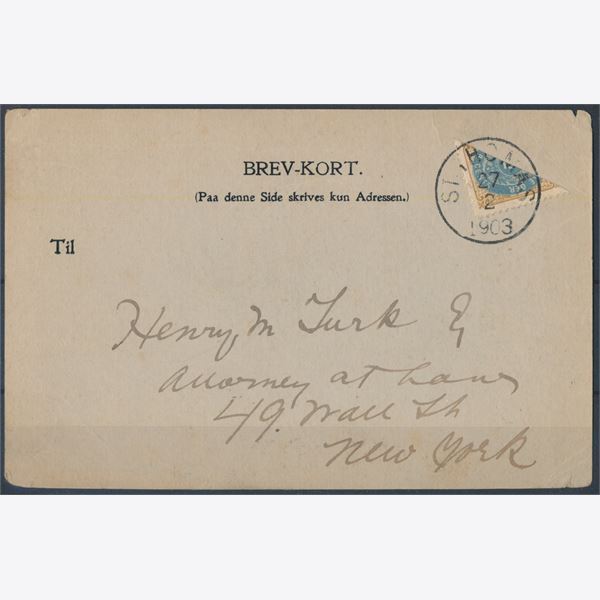 BREV-KORT.
(Paa denne Side skrives kun Adressen.)
ST. THOMAS
27
2
1903
Til
Henry M Turk E
Attorney at Law
49 Wall St
New York